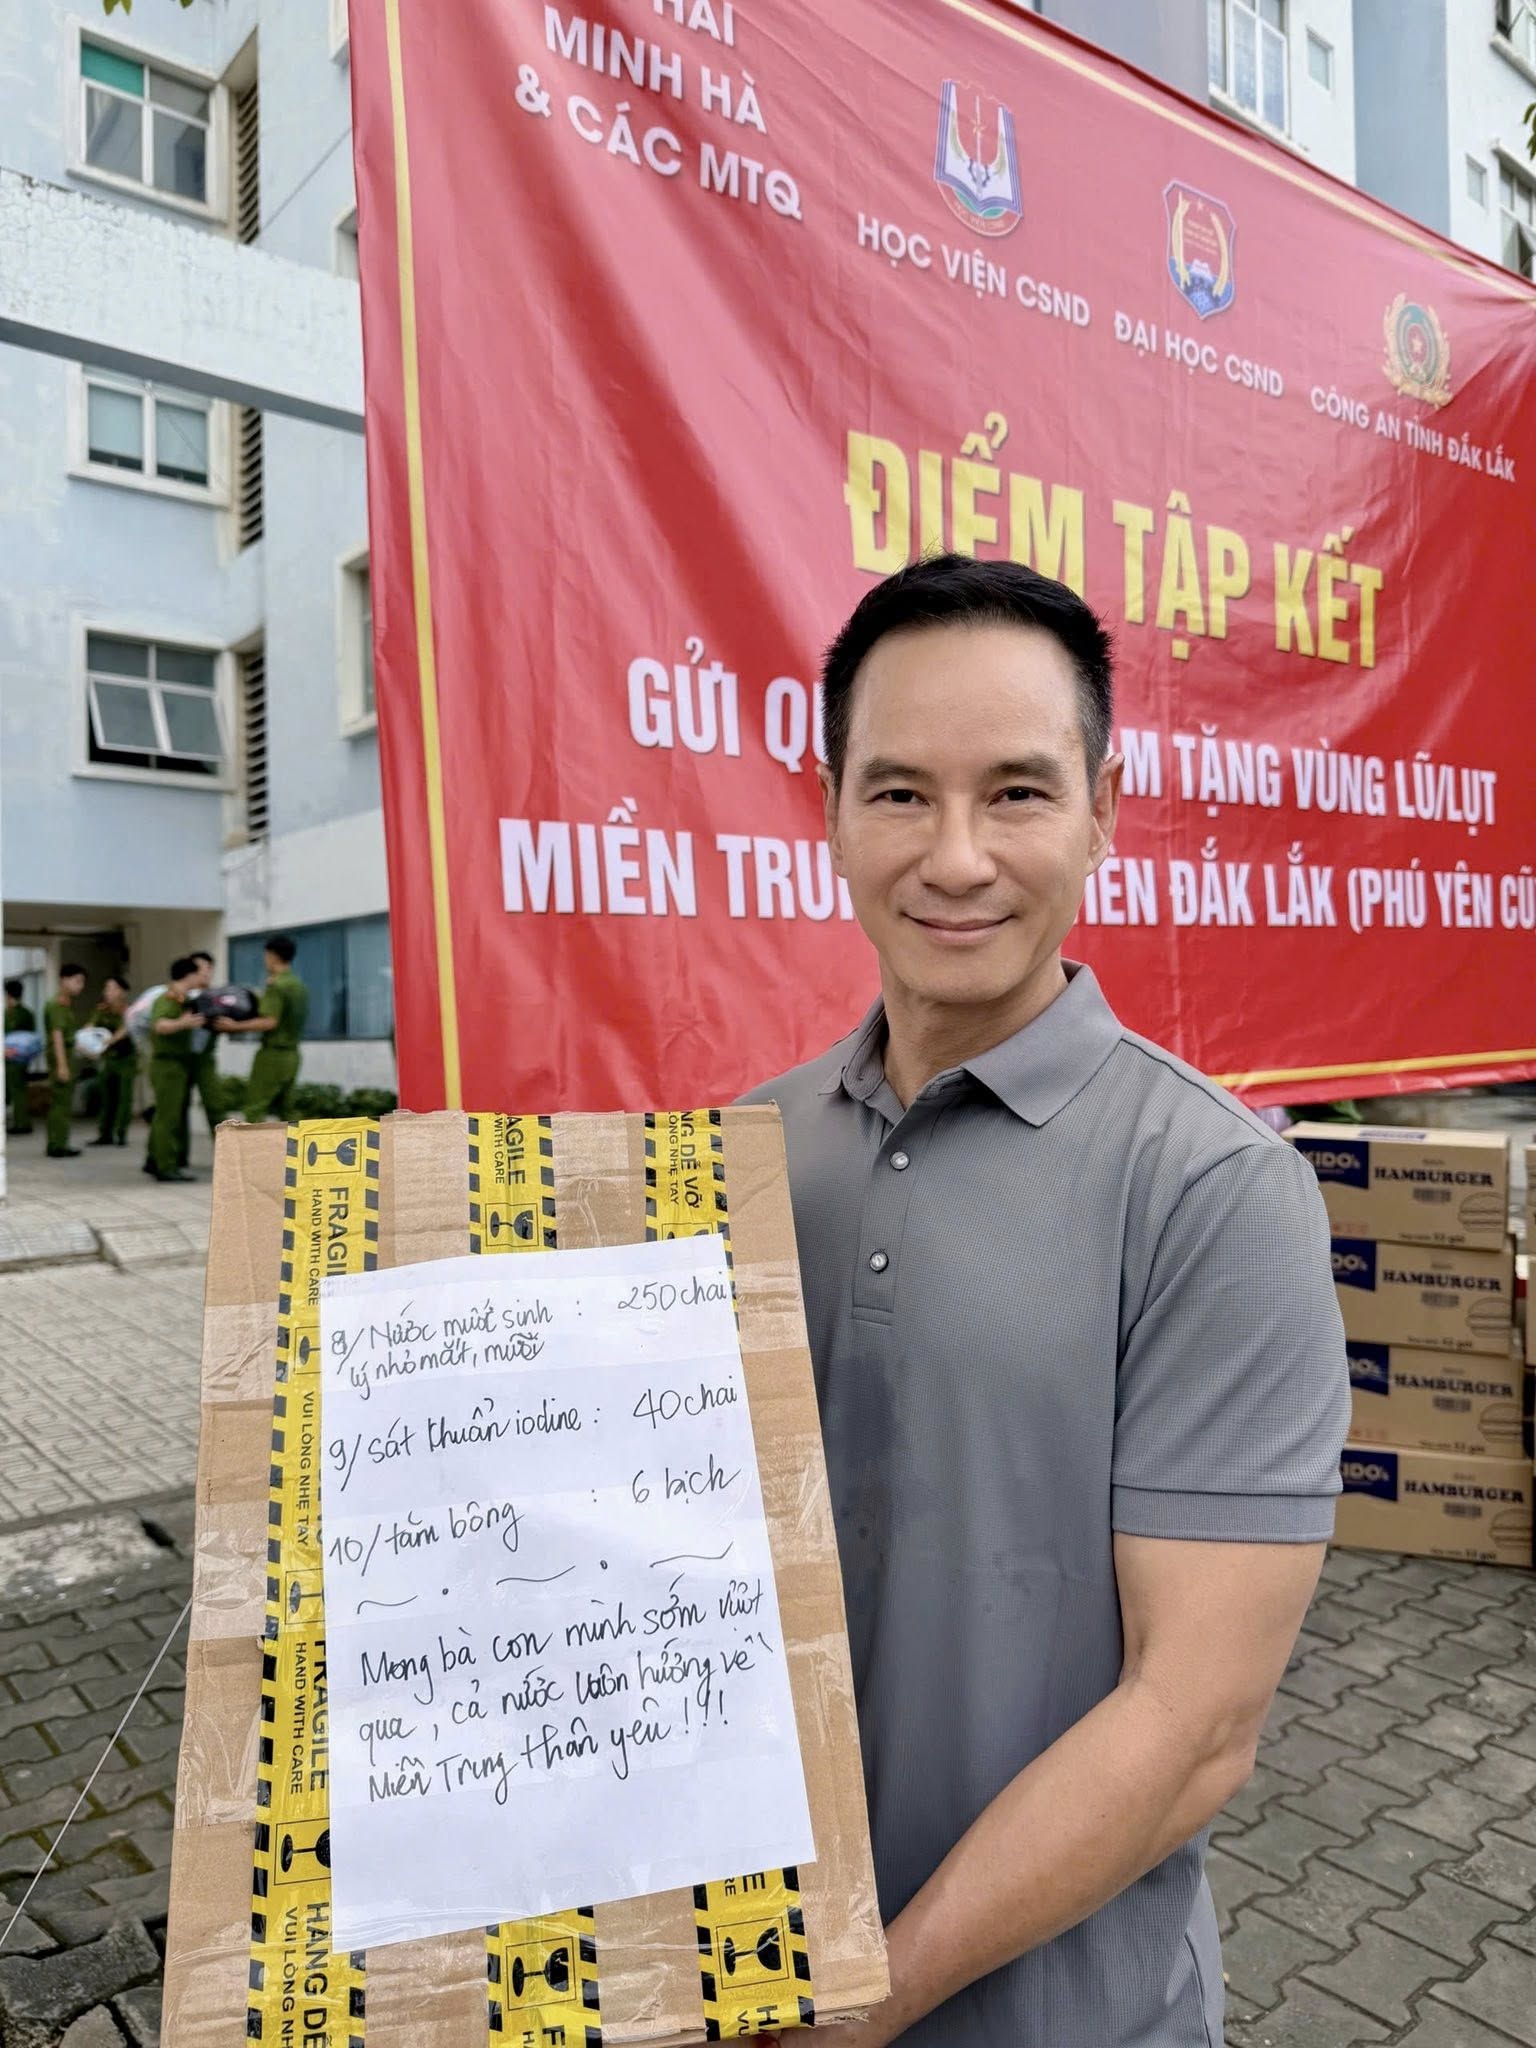 HẢI
MINH HÀ
& CÁC MTQ
HỌC VIỆN CSND
ĐẠI HỌC CSND
CÔNG AN TỈNH ĐẮK LẮK
ĐIỂM TẬP KẾT
GỬI QU ẠM TẶNG VÙNG LŨ/LỤT
MIỀN TRU ĐẮK LẮK (PHÚ YÊN CŨ
FRAGILE
HAND WITH CARE
VUI LÒNG NHẸ TAY
FRAGILE
HAND WITH CARE
HÀNG DỄ
VUI LÒNG NH
AGILE
WITH CARE
NG DỄ VỠ
LÒNG NHẸ TAY
8/ Nước muối sinh : 250 chai
lý nhỏ mắt, mũi
9/ Sát khuẩn iodine : 40 chai
10/ tăm bông : 6 bịch
Mong bà con mình sớm vượt
qua, cả nước luôn hướng về
Miền Trung thân yêu!!!
KIDO's HAMBURGER
IDO's HAMBURGER
KIDO's HAMBURGER
IDO's HAMBURGER